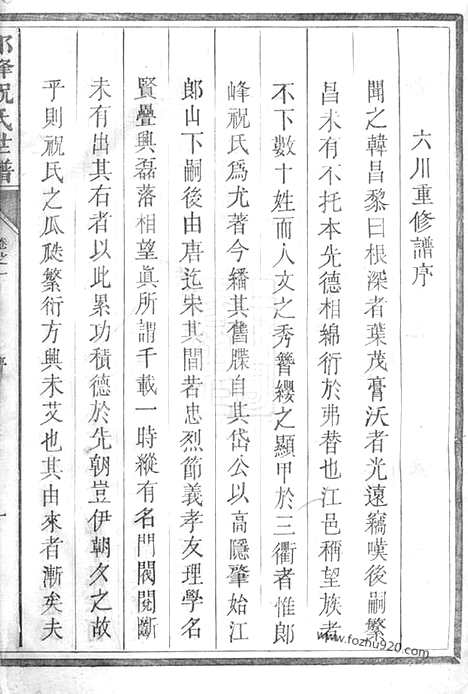 六川重修譜序
聞之韓昌黎曰根深者葉茂膏沃者光遠竊嘆後嗣繁
昌未有不托本先德相綿衍於弗替也江邑稱望族者
不下數十姓而人文之秀簪纓之顯甲於三衢者惟郎
峰祝氏爲尤著今繙其舊牒自其岱公以高隱肇始江
郎山下嗣後由唐迄宋其間若忠烈節義孝友理學名
賢疊興磊落相望眞所謂千載一時縱有名門閥閱斷
未有出其右者以此累功積德於先朝豈伊朝夕之故
乎則祝氏之瓜瓞繁衍方興未艾也其由來者漸矣夫
郎峰祝氏世譜
卷之一
序
一
www.fozhu920.com